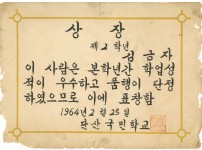 상장
제2학년
김금자
이 사람은 본학년간 학업성
적이 우수하고 품행이 단정
하였으므로 이에 표창함
1964년 2월 25일
단산국민학교